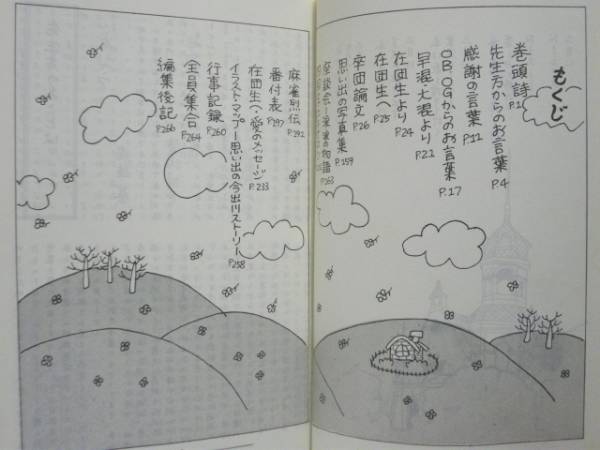 もくじ
巻頭詩 P.1
先生方からのお言葉 P.4
感謝の言葉 P.11
OB.OGからのお言葉 P.17
早混・大混より P.21
在団生より P.24
在団生へ P.25
卒団論文 P.26
思い出の写真集 P.159
座談会
麻雀烈伝 P.292
番付表 P.297
在団生へ愛のメッセージ P.233
イラストマップー思い出の今出川ストーリー P.258
行事記録 P.260
全員集合 P.264
編集後記 P.266